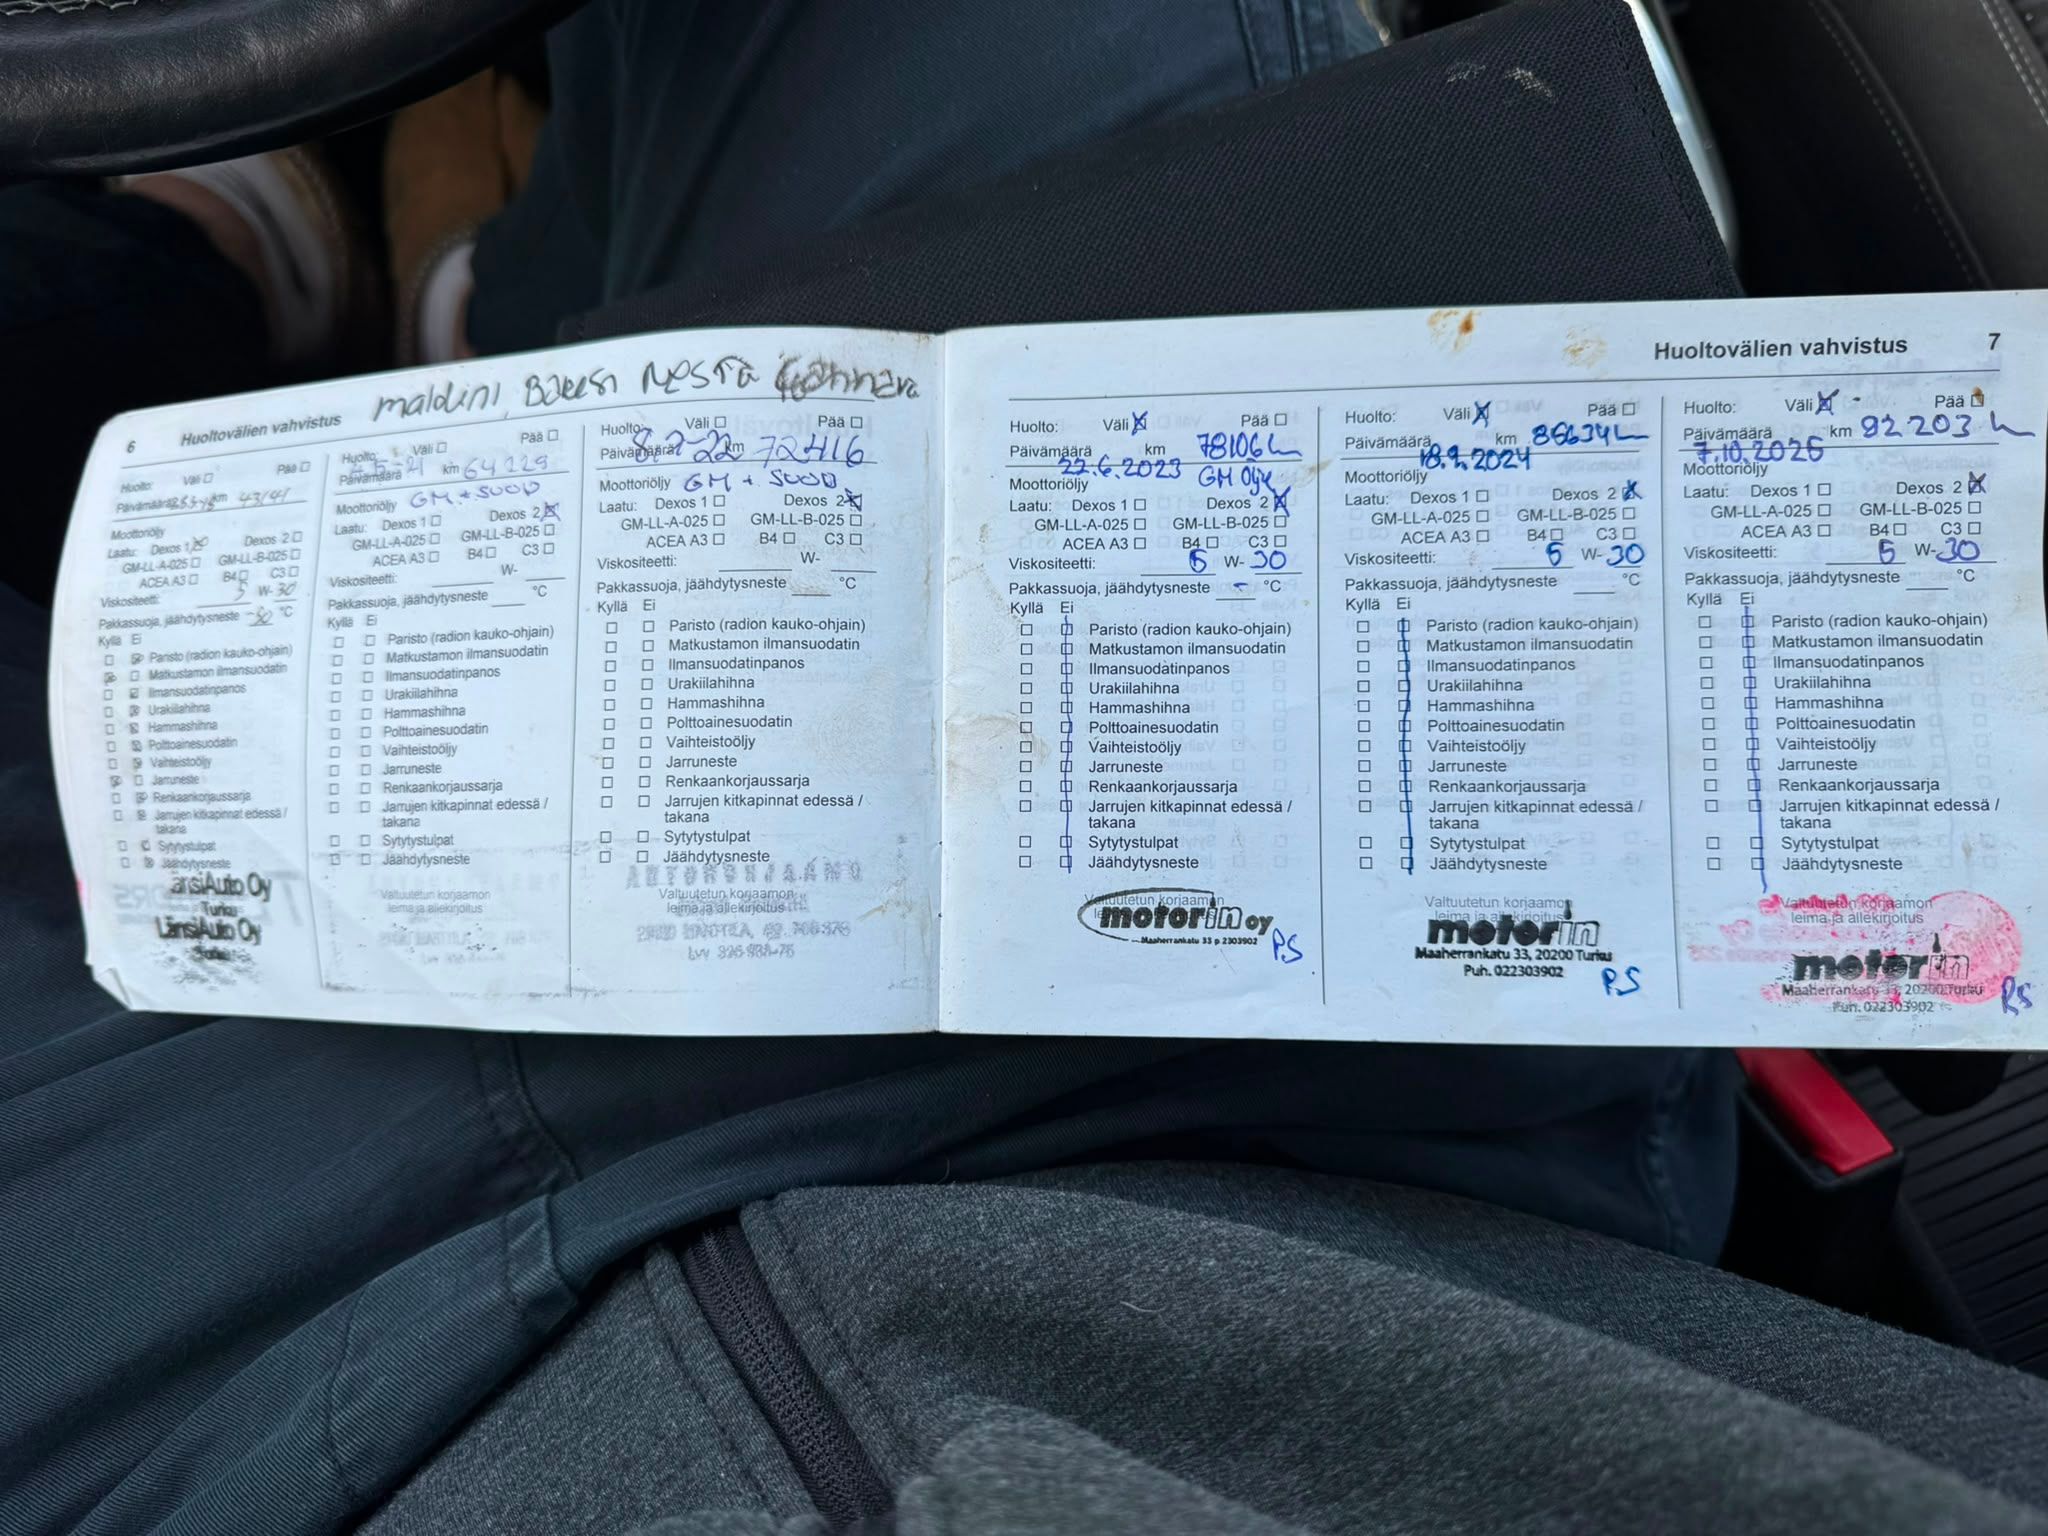 6 Huoltovälien vahvistus
maldini,
Huolto: Väli Pää
Päivämäärä km
Moottoriöljy
Laatu: Dexos 1 Dexos 2
GM-LL-A-025 GM-LL-B-025
ACEA A3 B4 C3
Viskositeetti: 5 W-30
Pakkassuoja, jäähdytysneste °C
Kyllä Ei
Paristo (radion kauko-ohjain)
Matkustamon ilmansuodatin
Ilmansuodatinpanos
Urakiilahihna
Hammashihna
Polttoainesuodatin
Vaihteistoöljy
Jarruneste
Renkaankorjaussarja
Jarrujen kitkapinnat edessä /
takana
Sytytystulpat
Jäähdytysneste
änsiAuto Oy
Turku
LänsiAuto Oy
Huolto: Väli Pää
Päivämäärä km 64229
Moottoriöljy GM + SUOD
Laatu: Dexos 1 Dexos 2
GM-LL-A-025 GM-LL-B-025
ACEA A3 B4 C3
Viskositeetti: W-
Pakkassuoja, jäähdytysneste °C
Kyllä Ei
Paristo (radion kauko-ohjain)
Matkustamon ilmansuodatin
Ilmansuodatinpanos
Urakiilahihna
Hammashihna
Polttoainesuodatin
Vaihteistoöljy
Jarruneste
Renkaankorjaussarja
Jarrujen kitkapinnat edessä /
takana
Sytytystulpat
Jäähdytysneste
Valtuutetun korjaamon
leima ja allekirjoitus
Huolto: Väli Pää
Päivämäärä 8.2-22 km 72416
Moottoriöljy GM + SUOD.
Laatu: Dexos 1 Dexos 2
GM-LL-A-025 GM-LL-B-025
ACEA A3 B4 C3
Viskositeetti: W-
Pakkassuoja, jäähdytysneste °C
Kyllä Ei
Paristo (radion kauko-ohjain)
Matkustamon ilmansuodatin
Ilmansuodatinpanos
Urakiilahihna
Hammashihna
Polttoainesuodatin
Vaihteistoöljy
Jarruneste
Renkaankorjaussarja
Jarrujen kitkapinnat edessä /
takana
Sytytystulpat
Jäähdytysneste
AUTOKORJAAMO
Valtuutetun korjaamon
leima ja allekirjoitus
Huoltovälien vahvistus 7
Huolto: Väli Pää
Päivämäärä km 78106
22.6.2023 GM Öljy
Moottoriöljy
Laatu: Dexos 1 Dexos 2
GM-LL-A-025 GM-LL-B-025
ACEA A3 B4 C3
Viskositeetti: 5 W-30
Pakkassuoja, jäähdytysneste - °C
Kyllä Ei
Paristo (radion kauko-ohjain)
Matkustamon ilmansuodatin
Ilmansuodatinpanos
Urakiilahihna
Hammashihna
Polttoainesuodatin
Vaihteistoöljy
Jarruneste
Renkaankorjaussarja
Jarrujen kitkapinnat edessä /
takana
Sytytystulpat
Jäähdytysneste
Valtuutetun korjaamon
motorin oy
Maaherrankatu 33 p 2303902
PS
Huolto: Väli Pää
Päivämäärä km 85634
18.9.2024
Moottoriöljy
Laatu: Dexos 1 Dexos 2
GM-LL-A-025 GM-LL-B-025
ACEA A3 B4 C3
Viskositeetti: 5 W-30
Pakkassuoja, jäähdytysneste °C
Kyllä Ei
Paristo (radion kauko-ohjain)
Matkustamon ilmansuodatin
Ilmansuodatinpanos
Urakiilahihna
Hammashihna
Polttoainesuodatin
Vaihteistoöljy
Jarruneste
Renkaankorjaussarja
Jarrujen kitkapinnat edessä /
takana
Sytytystulpat
Jäähdytysneste
Valtuutetun korjaamon
leima ja allekirjoitus
motorin
Maaherrankatu 33, 20200 Turku
Puh. 022303902
PS
Huolto: Väli Pää
Päivämäärä km 92203
7.10.2025
Moottoriöljy
Laatu: Dexos 1 Dexos 2
GM-LL-A-025 GM-LL-B-025
ACEA A3 B4 C3
Viskositeetti: 5 W-30
Pakkassuoja, jäähdytysneste °C
Kyllä Ei
Paristo (radion kauko-ohjain)
Matkustamon ilmansuodatin
Ilmansuodatinpanos
Urakiilahihna
Hammashihna
Polttoainesuodatin
Vaihteistoöljy
Jarruneste
Renkaankorjaussarja
Jarrujen kitkapinnat edessä /
takana
Sytytystulpat
Jäähdytysneste
Valtuutetun korjaamon
leima ja allekirjoitus
motorin
Maaherrankatu 33, 20200 Turku
Puh. 022303902
PS